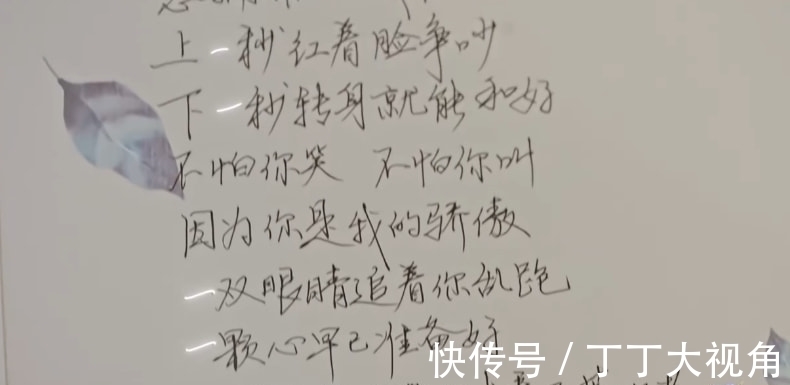 上一秒红着脸争吵
下一秒转身就能和好
不怕你笑 不怕你叫
因为你是我的骄傲
一双眼睛追着你乱跑
一颗心早已准备好
快传号 / 丁丁大视角